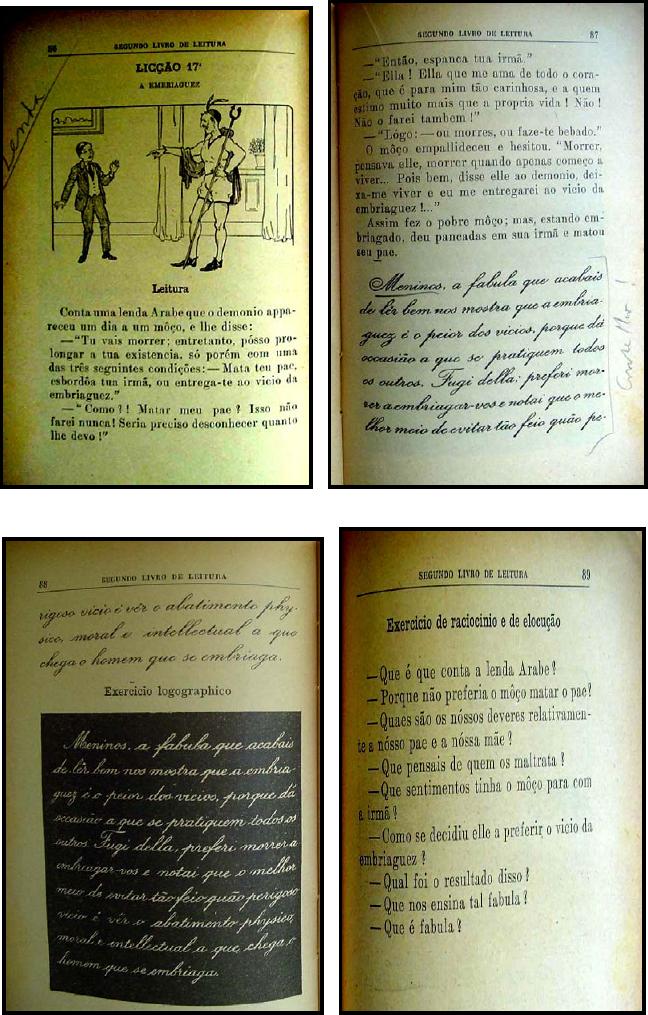 86 SEGUNDO LIVRO DE LEITURA
LICÇÃO 17ª
A EMBRIAGUEZ
Lenda
Leitura
Conta uma lenda Arabe que o demonio appa-
receu um dia a um môço, e lhe disse:
—"Tu vais morrer; entretanto, pósso pro-
longar a tua existencia, só porém com uma
das três seguintes condições:—Mata teu pae,
esbordôa tua irmã, ou entrega-te ao vicio da
embriaguez."
—"Como?! Matar meu pae? Isso não
farei nunca! Seria preciso desconhecer quanto
lhe devo!"
SEGUNDO LIVRO DE LEITURA 87
—"Então, espanca tua irmã."
—"Ella! Ella que me ama de todo o cora-
ção, que é para mim tão carinhosa, e a quem
estimo muito mais que a propria vida! Não!
Não o farei tambem!"
—"Lógo:—ou morres, ou faze-te bebado."
O môço empallideceu e hesitou. "Morrer,
pensava elle, morrer quando apenas começo a
viver... Pois bem, disse elle ao demonio, dei-
xa-me viver e eu me entregarei ao vicio da
embriaguez!..."
Assim fez o pobre môço; mas, estando em-
briagado, deu pancadas em sua irmã e matou
seu pae.
Meninos, a fabula que acabais
de lêr bem nos mostra que a embria-
guez é o peior dos vicios, porque dá
occasião a que se pratiquem todos
os outros. Fugi della; preferi mor-
rer a embriagar-vos e notai que o me-
lhor meio de evitar tão feio quão pe-
Conselho!
88 SEGUNDO LIVRO DE LEITURA
rigoso vicio é vêr o abatimento phy-
sico, moral e intellectual a que
chega o homem que se embriaga.
Exercicio logographico
Meninos, a fabula que acabais
de lêr bem nos mostra que a embria-
guez é o peior dos vicios, porque dá
occasião a que se pratiquem todos os
outros. Fugi della, preferi morrer a
embriagar-vos e notai que o melhor
meio de evitar tão feio quão perigoso
vicio é vêr o abatimento physico,
moral e intellectual a que chega o
homem que se embriaga.
SEGUNDO LIVRO DE LEITURA 89
Exercicio de raciocinio e de elocução
—Que é que conta a lenda Arabe?
—Porque não preferia o môço matar o pae?
—Quaes são os nóssos deveres relativamen-
te a nósso pae e a nóssa mãe?
—Que pensais de quem os maltrata?
—Que sentimentos tinha o môço para com
a irmã?
—Como se decidiu elle a preferir o vicio da
embriaguez?
—Qual foi o resultado disso?
—Que nos ensina tal fabula?
—Que é fabula?